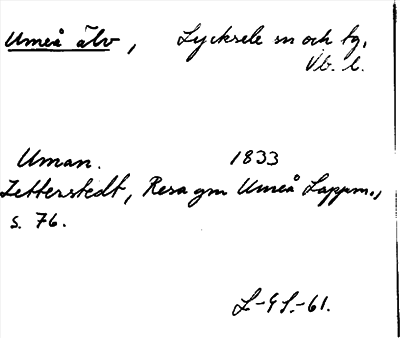 Umeå älv, Lycksele sn och tg,
Vb. l.
Uman. 1833
Zetterstedt, Resa gm Umeå Lappm.,
s. 76.
L-G L.-61.